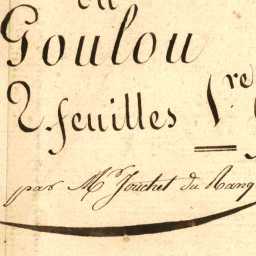 Goulou
2. feuilles 1re
par Mr. Jouchet du Rang